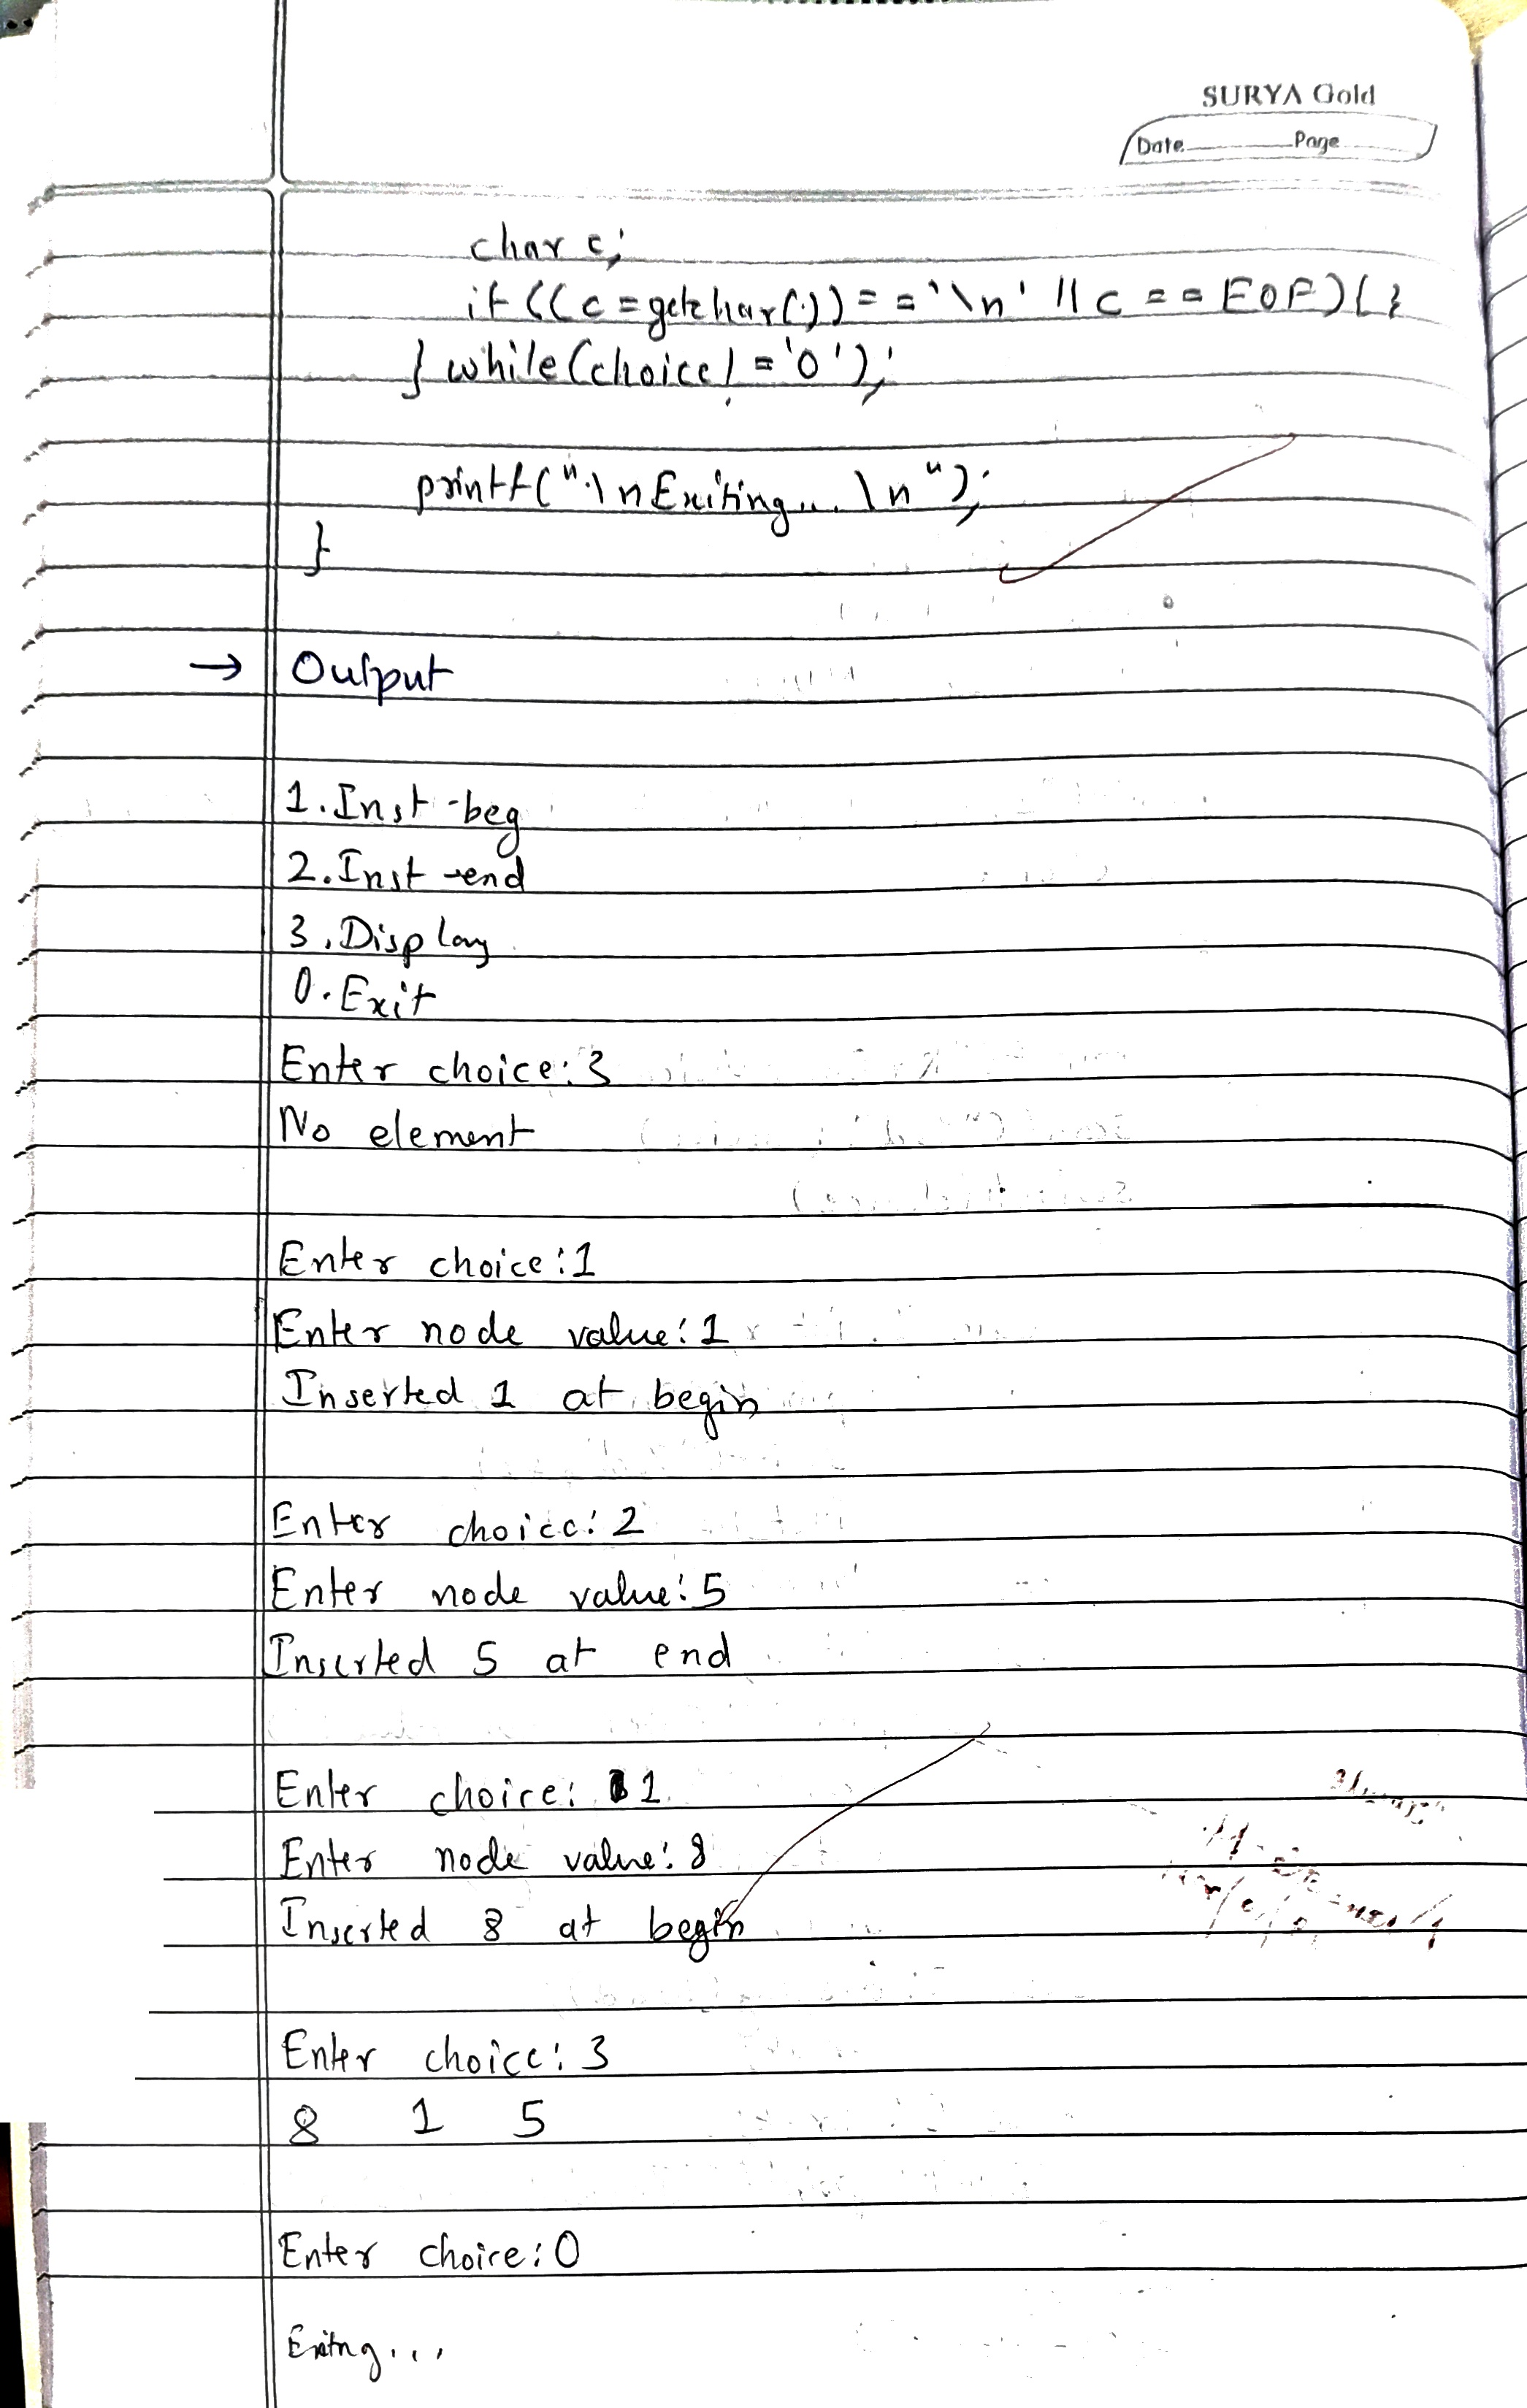 SURYA Gold
Date Page
char c;
if ((c = getchar()) == '\n' || c == EOF) { }
} while (choice != '0');
printf("\nExiting... \n");
}
→ Output
1. Inst-beg
2. Inst-end
3. Display
0. Exit
Enter choice: 3
No element
Enter choice: 1
Enter node value: 1
Inserted 1 at begin
Enter choice: 2
Enter node value: 5
Inserted 5 at end
Enter choice: 1
Enter node value: 8
Inserted 8 at begin
Enter choice: 3
8 1 5
Enter choice: 0
Exitng...